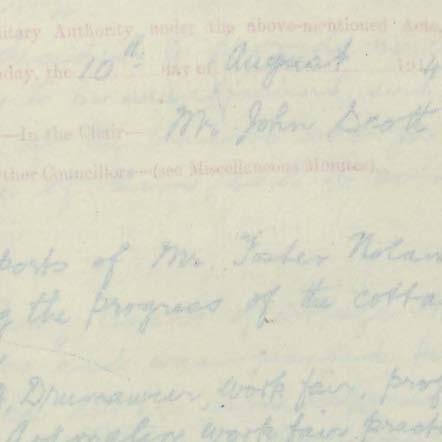 itary Authority under the above-mentioned Acts,
day, the 10th day of August 1914
—In the Chair— Mr. John Scott
ther Councillors—(see Miscellaneous Minutes).
ports of Mr. Foster Nolan
g the progress of the cotta
Drumawier, work fair, prog
work fair pract